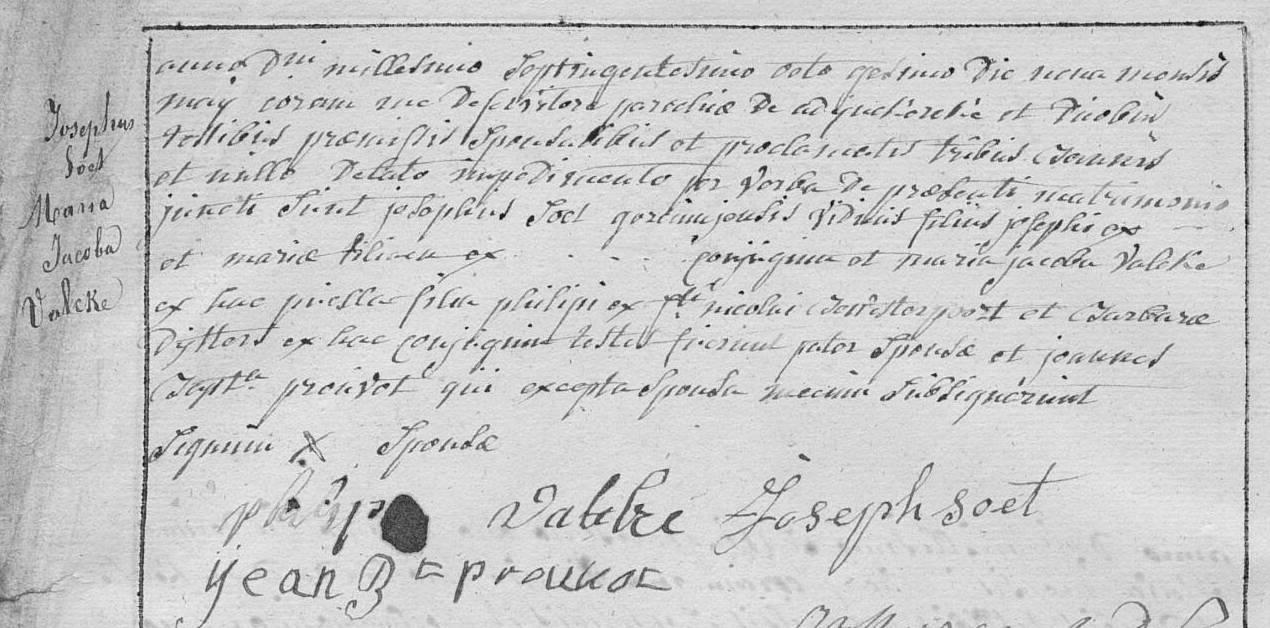 Josephus
Soet
Maria
Jacoba
Valcke
anno Dni millesimo Septingentesimo octogesimo Die nona mensis
maij coram me Deservitore parochiæ De et Duobus
testibus præmissis Sponsalibus et proclamatis tribus bannis
et nullo Delato impedimento per Verba De præsenti matrimonio
juncti Sunt josephus Soet Viduus filius josephi ex
et mariæ filiaca ex . . . . conjugum et maria jacoba Valcke
ex hac puella filia philipi ex nicolai et barbaræ
ex hac conjugum testes fuerunt pater Sponsæ et joannes
bapta prouvot qui excepta Sponsa mecum Subsignarunt
Signum X Sponsæ
Valcke Joseph soet
ijean Bt prouvot